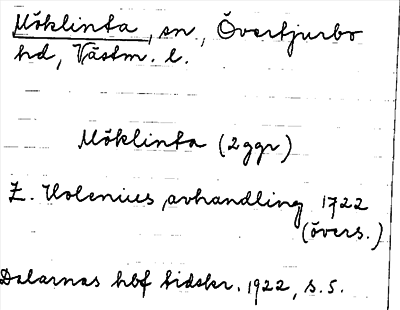 Möklinta, sn, Övertjurbo
hd, Västm. l.
Möklinta (2ggr)
Z. Holenius avhandling 1722
(övers.)
Dalarnas hbf tidskr. 1922, s. 5.